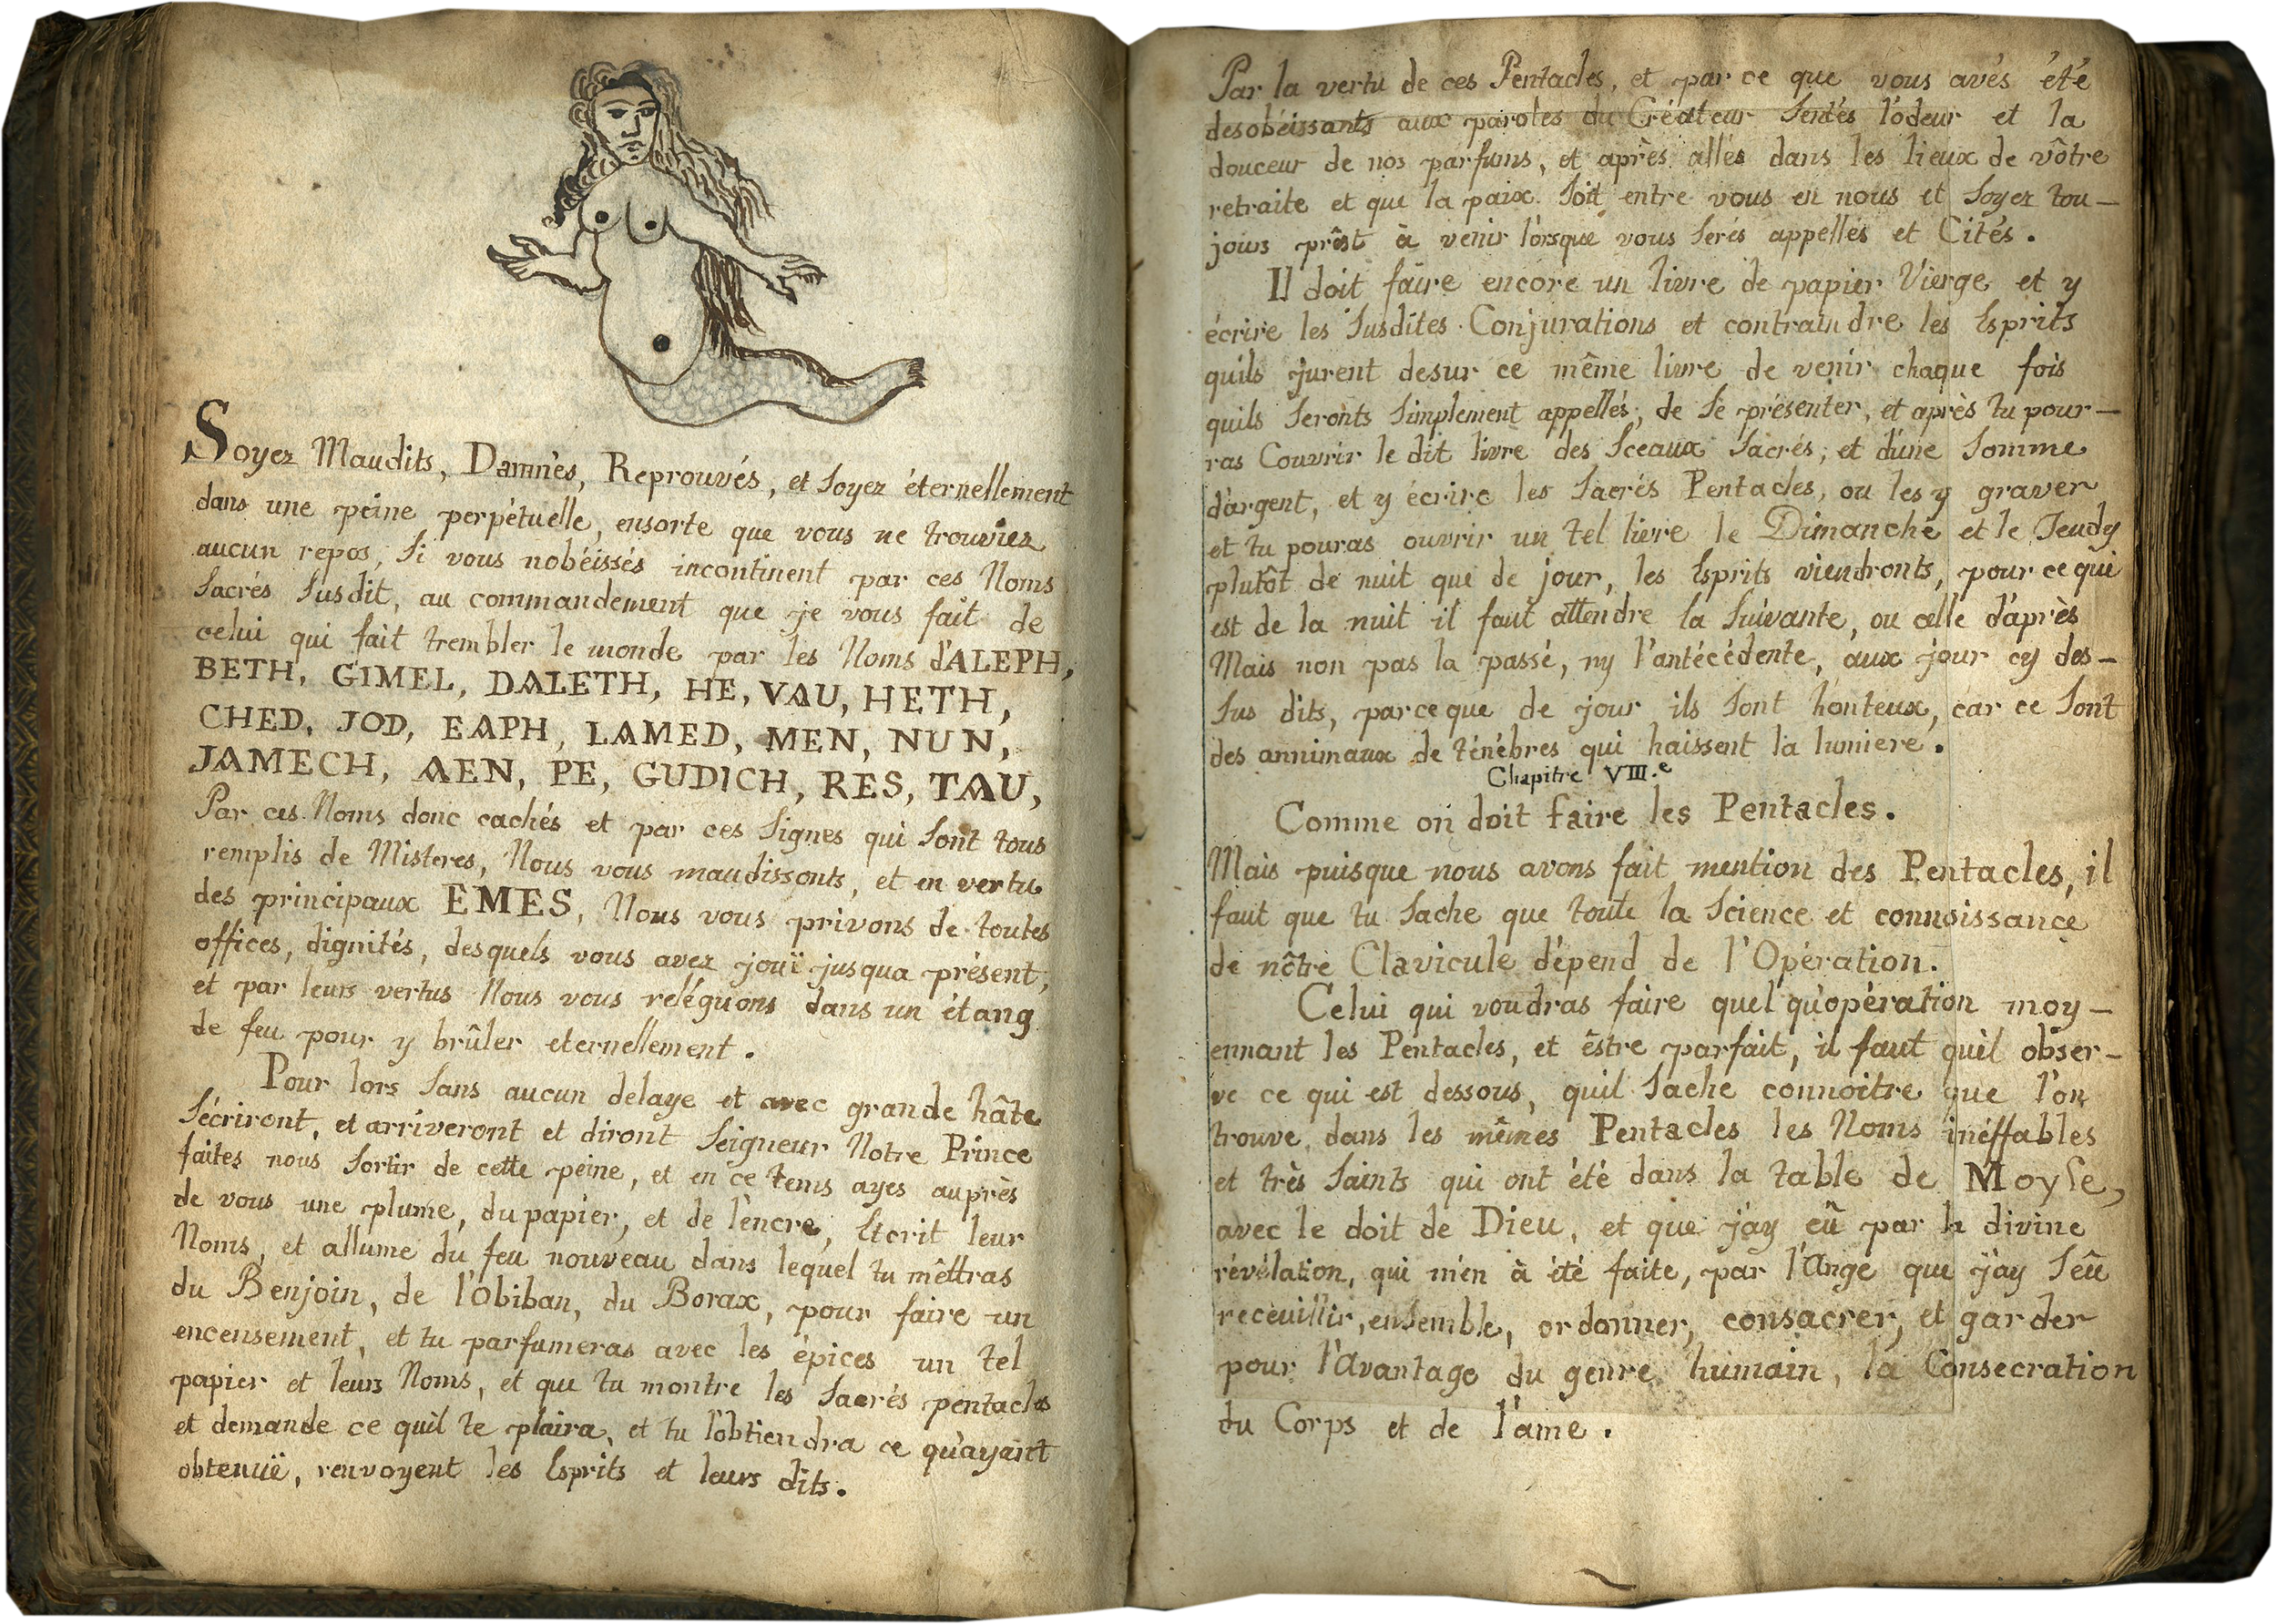 Soyez Maudits, Damnés, Reprouvés, et soyez éternellement
dans une peine perpétuelle, ensorte que vous ne trouviez
aucun repos, si vous nobéissés incontinent par ces Noms
Sacrés susdit, au commandement que je vous fait de
celui qui fait trembler le monde par les Noms d'ALEPH,
BETH, GIMEL, DALETH, HE, VAU, HETH,
CHED, JOD, EAPH, LAMED, MEN, NUN,
JAMECH, AEN, PE, GUDICH, RES, TAU,
Par ces Noms donc cachés et par ces signes qui sont tous
remplis de Misteres, Nous vous maudissonts, et en vertu
des principaux EMES, Nous vous privons de toutes
offices, dignités, desquels vous avez jouï jusqua présent,
et par leurs vertus Nous vous reléguons dans un étang
de feu pour y brûler eternellement.
Pour lors sans aucun delaye et avec grande hâte
sécriront, et arriveront et diront Seigneur Notre Prince
faites nous sortir de cette peine, et en ce tems ayes auprès
de vous une plume, du papier, et de l'encre, Ecrit leur
Noms, et allume du feu nouveau dans lequel tu mêttras
du Benjoin, de l'Obiban, du Borax, pour faire un
encensement, et tu parfumeras avec les épices un tel
papier et leurs Noms, et que tu montre les Sacrés pentacles
et demande ce quil te plaira, et tu l'obtiendra ce qu'ayant
obtenuë, renvoyent les Esprits et leurs dits.
Par la vertu de ces Pentacles, et par ce que vous avés été
desobéissants aux paroles du Créateur sentés l'ôdeur et la
douceur de nos parfums, et après allés dans les lieux de vôtre
retraite et que la paix soit entre vous en nous et soyez tou-
jours prêst à venir lorsque vous serés appellés et Cités.
Il doit faire encore un livre de papier Vierge et y
écrire les susdites Conjurations et contraindre les Esprits
quils jurent desur ce même livre de venir chaque fois
quils seronts simplement appellés, de se présenter, et après tu pour-
ras Couvrir le dit livre des Sceaux Sacrés, et d'une somme
d'argent, et y écrire les Sacrés Pentacles, ou les y graver
et tu pouras ouvrir un tel livre le Dimanche et le Jeudy
plutôt de nuit que de jour, les Esprits viendronts, pour ce qui
est de la nuit il faut attendre la suivante, ou celle d'après
Mais non pas la passé, ny l'antécédente, aux jour cy des-
sus dits, parceque de jour ils sont honteux, car ce sont
des annimaux de ténébres qui haissent la lumiere.
Chapitre VIII.e
Comme on doit faire les Pentacles.
Mais puisque nous avons fait mention des Pentacles, il
faut que tu sache que toute la science et connoissance
de nôtre Clavicule d'épend de l'Opération.
Celui qui voudras faire quel qu'opération moy-
ennant les Pentacles, et êstre parfait, il faut quil obser-
ve ce qui est dessous, quil sache connoitre que l'on
trouve dans les mêmes Pentacles les Noms inéffables
et très Saints qui ont été dans la table de Moyse,
avec le doit de Dieu, et que j'ay eû par la divine
révélation, qui m'en à été faite, par l'Ange que j'ay sêu
receuillir, ensemble, ordonner, consacrer, et garder
pour l'avantage du genre humain, la Consecration
du Corps et de l'ame.